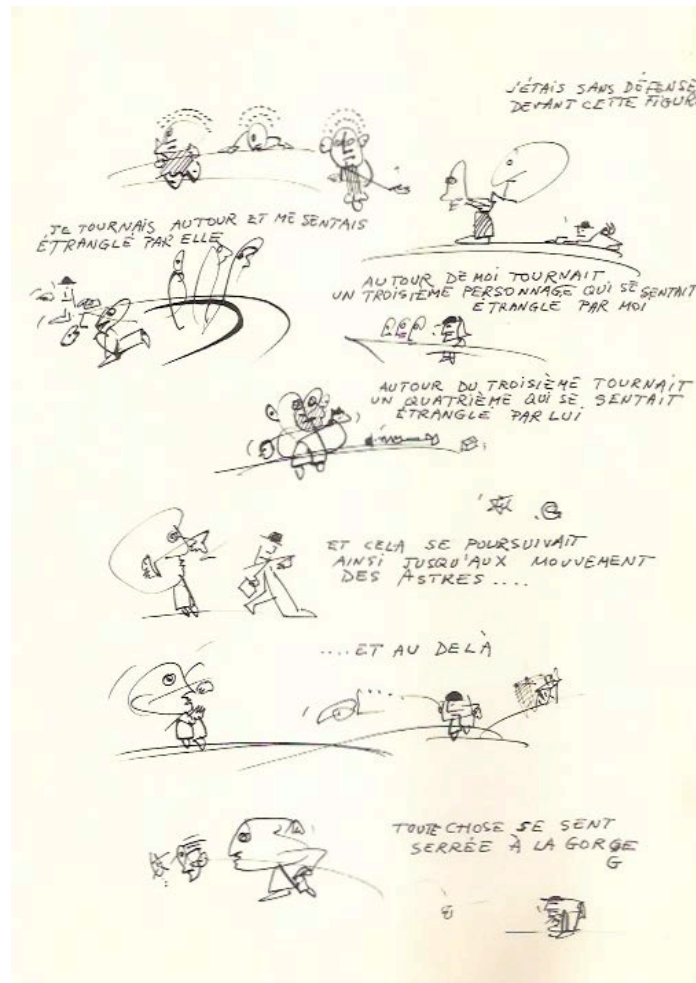 J'ÉTAIS SANS DÉFENSE
DEVANT CETTE FIGUR
JE TOURNAIS AUTOUR ET ME SENTAIS
ÉTRANGLÉ PAR ELLE
AUTOUR DE MOI TOURNAIT
UN TROISIÈME PERSONNAGE QUI SE SENTAIT
ÉTRANGLÉ PAR MOI
AUTOUR DU TROISIÈME TOURNAIT
UN QUATRIÈME QUI SE SENTAIT
ÉTRANGLÉ PAR LUI
ET CELA SE POURSUIVAIT
AINSI JUSQU'AUX MOUVEMENT
DES ASTRES....
....ET AU DELÀ
TOUTE CHOSE SE SENT
SERRÉE À LA GORGE
G